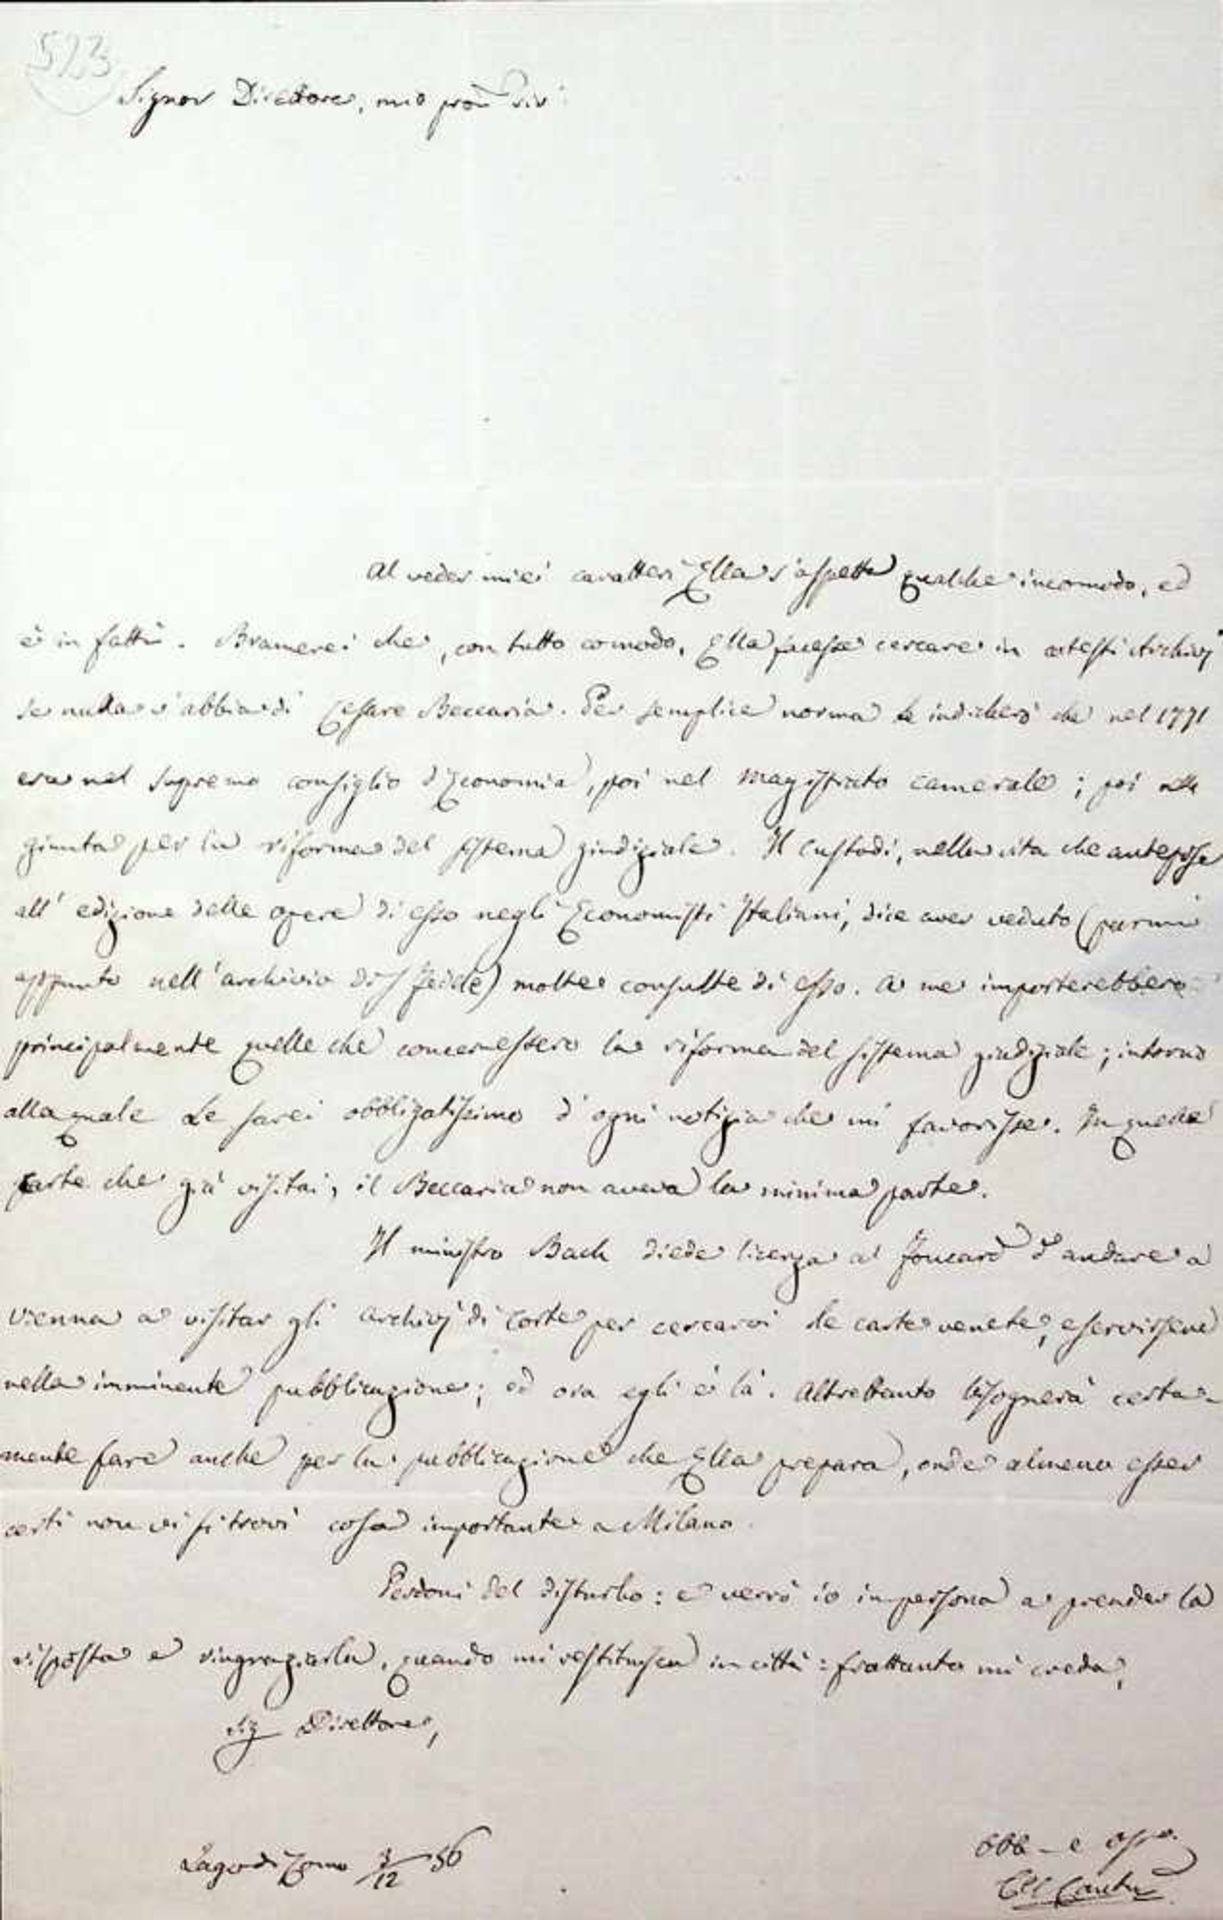 523
Signor Direttore, mio pron. riv.
Al veder miei caratteri Ella s'aspetta qualche incomodo, ed
è in fatti. Bramerei che, con tutto comodo, Ella facesse cercare in cotesti Archivj
se nulla v'abbia di Cesare Beccaria. Per semplice norma le indicherò che nel 1771
era nel Supremo consiglio d'Economia, poi nel magistrato camerale; poi nella
giunta per la riforma del sistema giudiziale. Il Custodi, nella vita che antepose
all'edizione delle opere di esso negli Economisti Italiani, dice aver veduto (parmi
appunto nell'archivio di S Fedele) molte consulte di esso. A me importerebbero
principalmente quelle che concernessero la riforma del sistema giudiziale; intorno
alla quale Le sarei obbligatissimo d'ogni notizia che mi favorisse. In quelle
carte che già visitai, il Beccaria non aveva la minima parte.
Il ministro Bach diede licenza al Foucard d'andare a
Vienna a visitar gli archivj di Corte per cercarvi le carte venete, e servirsene
nella imminente pubblicazione; ed ora egli è là. Altrettanto bisognerà certa-
mente fare anche per la pubblicazione che Ella prepara, onde almeno esser
certi non vi si trovi cosa importante a Milano.
Perdoni del disturbo: e verrò io in persona a prender la
risposta e ringraziarla, quando mi restituisca in città: frattanto mi creda,
Sig Direttore,
Lago di Como 3/12 56
obb e aff
C Cantu